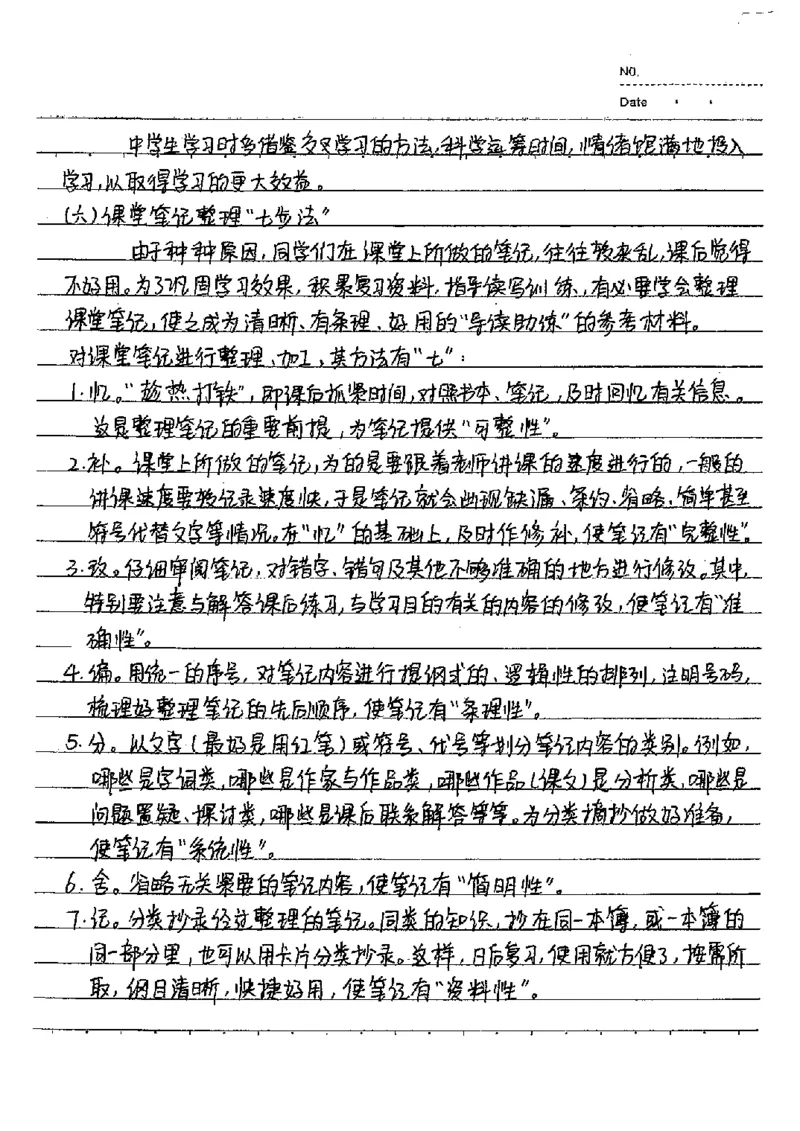 NO.
Date
中学生学习时多借鉴多种学习的方法,科学运筹时间,情绪饱满地投入
学习,以取得学习的更大效益。
(六)课堂笔记整理“七步法”
由于种种原因,同学们在课堂上所做的笔记,往往较杂乱,课后觉得
不好用。为了巩固学习效果,积累复习资料,指导读写训练,有必要学会整理
课堂笔记,使之成为清晰、有条理、好用的“导读助练”的参考材料。
对课堂笔记进行整理、加工,其方法有“七”:
1.忆。“趁热打铁”,即课后抓紧时间,对照书本、笔记,及时回忆有关信息。
这是整理笔记的重要前提,为笔记提供“可整性”。
2.补。课堂上所做的笔记,为的是要跟着老师讲课的速度进行的,一般的
讲课速度要较记录速度快,于是笔记就会出现缺漏、条约、省略、简单甚至
符号代替文字等情况。在“忆”的基础上,及时作修补,使笔记有“完整性”。
3.改。仔细审阅笔记,对错字、错句及其他不够准确的地方进行修改。其中,
特别要注意与解答课后练习,与学习目的有关的内容的修改,使笔记有“准
确性”。
4.偏。用统一的序号,对笔记内容进行提纲式的、逻辑性的排列,注明号码,
梳理好整理笔记的先后顺序,使笔记有“条理性”。
5.分。以文字(最好是用红笔)或符号、代号等划分笔记内容的类别。例如,
哪些是字词类,哪些是作家与作品类,哪些作品(课文)是分析类,哪些是
问题置疑、探讨类,哪些是课后联系解答等等。为分类摘抄做好准备,
使笔记有“系统性”。
6.舍。省略无关紧要的笔记内容,使笔记有“简明性”。
7.记。分类抄录经过整理的笔记。同类的知识,抄在同一本簿,或一本簿的
同一部分里,也可以用卡片分类抄录。这样,日后复习,使用就方便了,按需所
取,纲目清晰,快捷好用,使笔记有“资料性”。